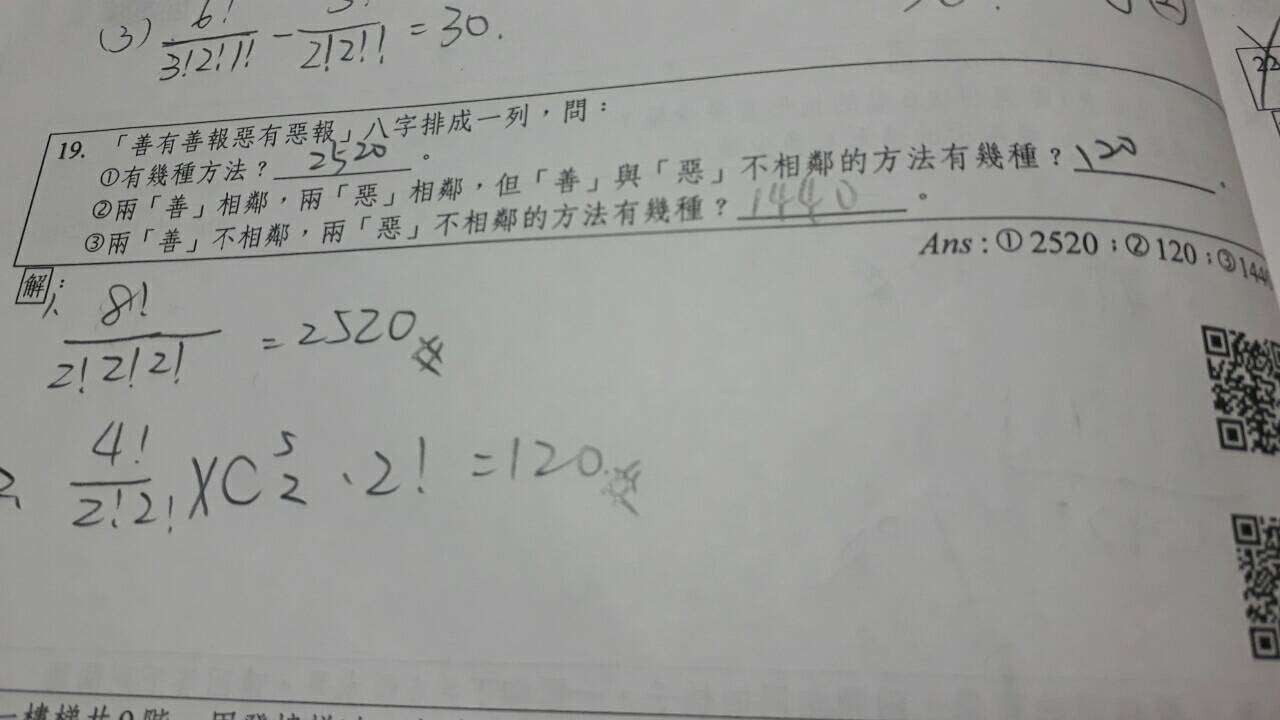 (3) 6!/3!2!1! - /2!2!! = 30.
22
19. 「善有善報惡有惡報」八字排成一列，問：
①有幾種方法？2520。
②兩「善」相鄰，兩「惡」相鄰，但「善」與「惡」不相鄰的方法有幾種？120.
③兩「善」不相鄰，兩「惡」不相鄰的方法有幾種？1440。
Ans : ① 2520；② 120；③ 144
解：
1、 8!/2!2!2! = 2520
2、 4!/2!2! X C 5 2 · 2! = 120